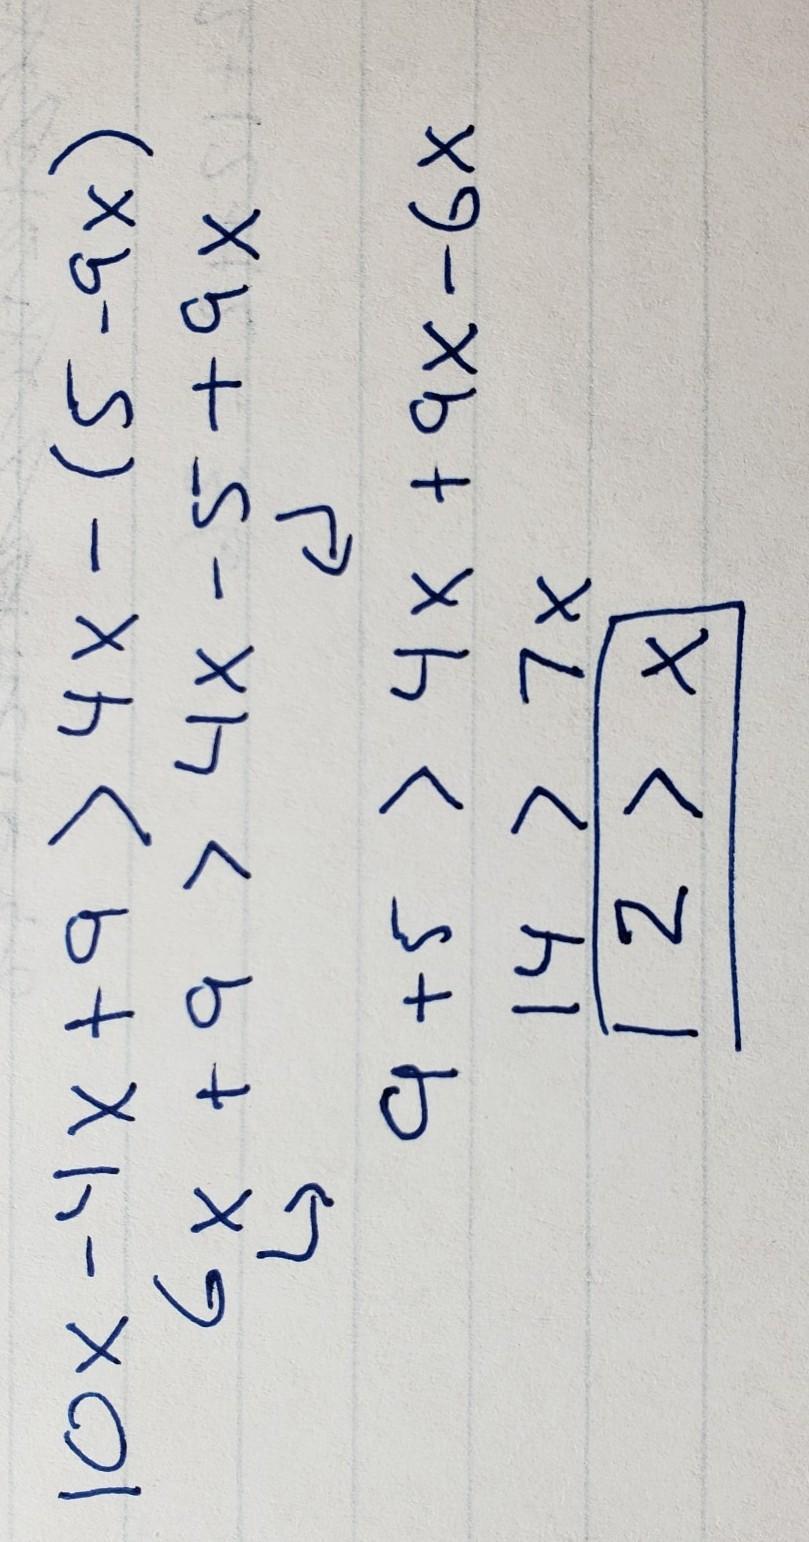 10x - 4x + 9 > 4x - (5 - 9x)
6x + 9 > 4x - 5 + 9x
9 + 5 > 4x + 9x - 6x
14 > 7x
2 > x